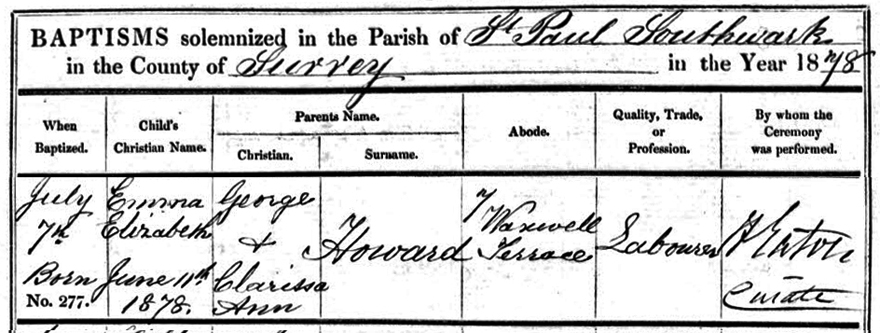 BAPTISMS solemnized in the Parish of St Paul Southwark
in the County of Surrey in the Year 1878
When Baptized.
Child's Christian Name.
Parents Name.
Christian.
Surname.
Abode.
Quality, Trade, or Profession.
By whom the Ceremony was performed.
July
7th
Born
No. 277.
Emma
Elizabeth
June 11th
1878.
George
&
Clarissa
Ann
Howard
7
Waxwell
Terrace
Labourer
Curate